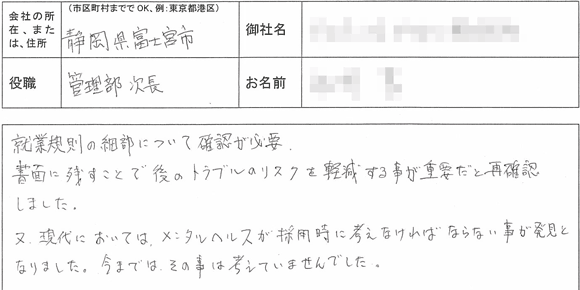 会社の所在、または、住所
(市区町村まででOK、例:東京都港区)
静岡県富士宮市
御社名
役職
管理部 次長
お名前
就業規則の細部について確認が必要.
書面に残すことで後のトラブルのリスクを軽減する事が重要だと再確認
しました。
又、現代においては、メンタルヘルスが採用時に考えなければならない事が発見と
なりました。今までは、その事は考えていませんでした。